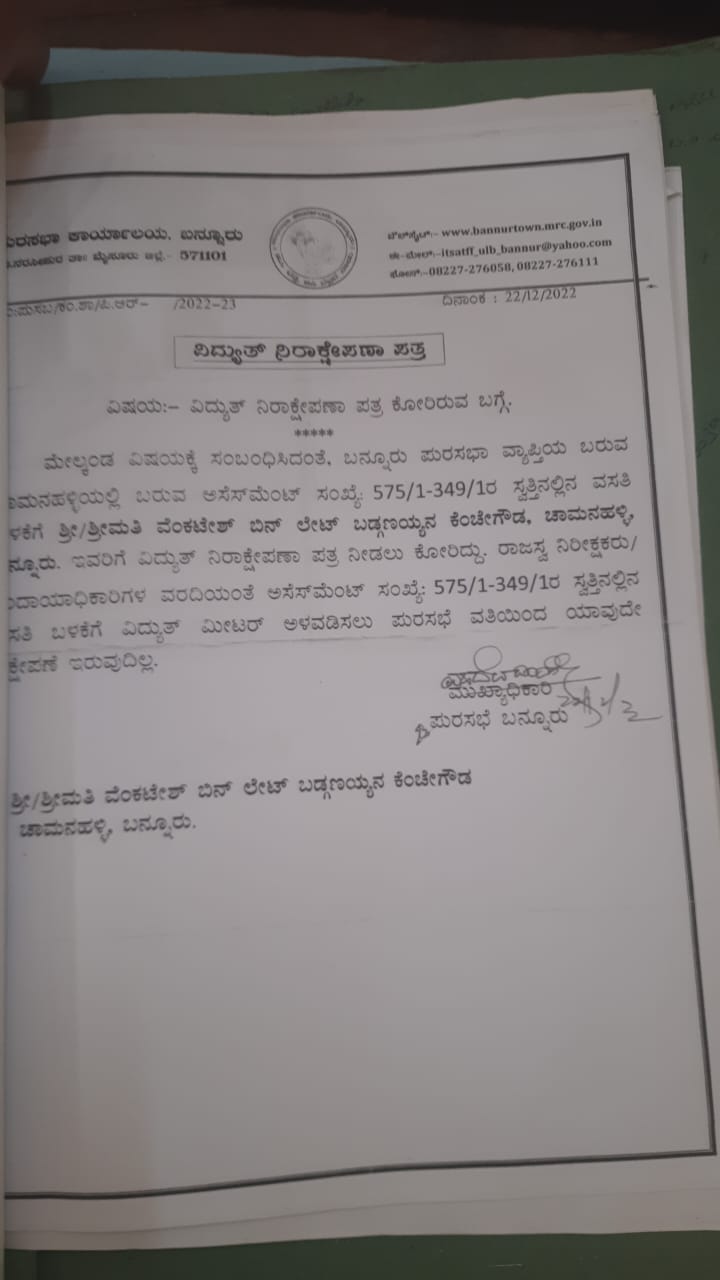 ಪುರಸಭಾ ಕಾರ್ಯಾಲಯ, ಬನ್ನೂರು
ತಾ: ಮೈಸೂರು ಜಿಲ್ಲೆ.- 571101
ವೆಬ್‌ಸೈಟ್:- www.bannurtown.mrc.gov.in
ಈ-ಮೇಲ್:-itsatff_ulb_bannur@yahoo.com
ಫೋನ್:-08227-276058, 08227-276111
ಪುಸಬ/ಕಂ.ಶಾ/ಪಿ.ಆರ್- /2022-23
ದಿನಾಂಕ : 22/12/2022
ವಿದ್ಯುತ್ ನಿರಾಕ್ಷೇಪಣಾ ಪತ್ರ
ವಿಷಯ:- ವಿದ್ಯುತ್ ನಿರಾಕ್ಷೇಪಣಾ ಪತ್ರ ಕೋರಿರುವ ಬಗ್ಗೆ.
*****
ಮೇಲ್ಕಂಡ ವಿಷಯಕ್ಕೆ ಸಂಬಂಧಿಸಿದಂತೆ, ಬನ್ನೂರು ಪುರಸಭಾ ವ್ಯಾಪ್ತಿಯ ಬರುವ
ಚಾಮನಹಳ್ಳಿಯಲ್ಲಿ ಬರುವ ಅಸೆಸ್‌ಮೆಂಟ್ ಸಂಖ್ಯೆ: 575/1-349/1ರ ಸ್ವತ್ತಿನಲ್ಲಿನ ವಸತಿ
ಬಳಕೆಗೆ ಶ್ರೀ/ಶ್ರೀಮತಿ ವೆಂಕಟೇಶ್ ಬಿನ್ ಲೇಟ್ ಬಡ್ಗಣಯ್ಯನ ಕೆಂಚೇಗೌಡ, ಚಾಮನಹಳ್ಳಿ,
ಬನ್ನೂರು. ಇವರಿಗೆ ವಿದ್ಯುತ್ ನಿರಾಕ್ಷೇಪಣಾ ಪತ್ರ ನೀಡಲು ಕೋರಿದ್ದು. ರಾಜಸ್ವ ನಿರೀಕ್ಷಕರು/
ಕಂದಾಯಾಧಿಕಾರಿಗಳ ವರದಿಯಂತೆ ಅಸೆಸ್‌ಮೆಂಟ್ ಸಂಖ್ಯೆ: 575/1-349/1ರ ಸ್ವತ್ತಿನಲ್ಲಿನ
ವಸತಿ ಬಳಕೆಗೆ ವಿದ್ಯುತ್ ಮೀಟರ್ ಅಳವಡಿಸಲು ಪುರಸಭೆ ವತಿಯಿಂದ ಯಾವುದೇ
ಆಕ್ಷೇಪಣೆ ಇರುವುದಿಲ್ಲ.
ಮುಖ್ಯಾಧಿಕಾರಿ
ಪುರಸಭೆ ಬನ್ನೂರು
ಶ್ರೀ/ಶ್ರೀಮತಿ ವೆಂಕಟೇಶ್ ಬಿನ್ ಲೇಟ್ ಬಡ್ಗಣಯ್ಯನ ಕೆಂಚೇಗೌಡ
ಚಾಮನಹಳ್ಳಿ, ಬನ್ನೂರು.